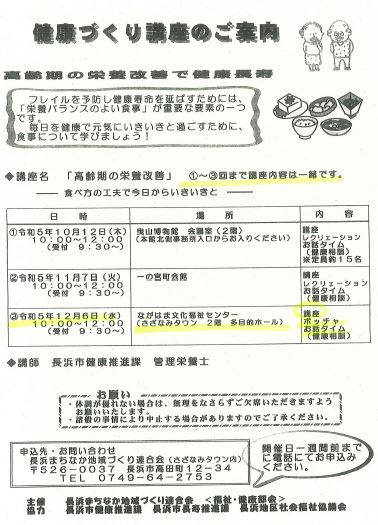 健康づくり講座のご案内
高齢期の栄養改善で健康長寿
フレイルを予防し健康寿命を延ばすためには、
「栄養バランスのよい食事」が重要な要素の一つ
です。
毎日を健康で元気にいきいきと過ごすために、
食事について学びましょう!
◆講座名 「高齢期の栄養改善」 ①~③回まで講座内容は一緒です。
― 食べ方の工夫で今日からいきいきと ―
日 時 場 所 内 容
①令和5年10月12日(木) 曳山博物館 会議室(2階) 講座
10:00~12:00 (本館北側事務所入口からお入りください) レクリエーション
(受付 9:30~) お話タイム
(健康相談)
※定員約15名
②令和5年11月7日(火) 一の宮町会館 講座
10:00~12:00 レクリエーション
(受付 9:30~) お話タイム
(健康相談)
③令和5年12月6日(水) ながはま文化福祉センター 講座
10:00~12:00 (さざなみタウン 2階 多目的ホール) ボッチャ
(受付 9:30~) お話タイム
(健康相談)
◆講師 長浜市健康推進課 管理栄養士
お願い
・体調が優れない場合は、無理をなさらずご欠席いただきますよう
お願いいたします。
・諸般の事情により中止する場合がありますのでご了承ください。
申込先・お問い合わせ
長浜まちなか地域づくり連合会(さざなみタウン内)
〒526-0037 長浜市高田町12-34
TEL 0749-64-2753
開催日一週間前まで
に電話にてお申込み
ください。
主催 長浜まちなか地域づくり連合会 <福祉・健康部会>
協力 長浜市健康推進課 長浜市長寿推進課 長浜地区社会福祉協議会